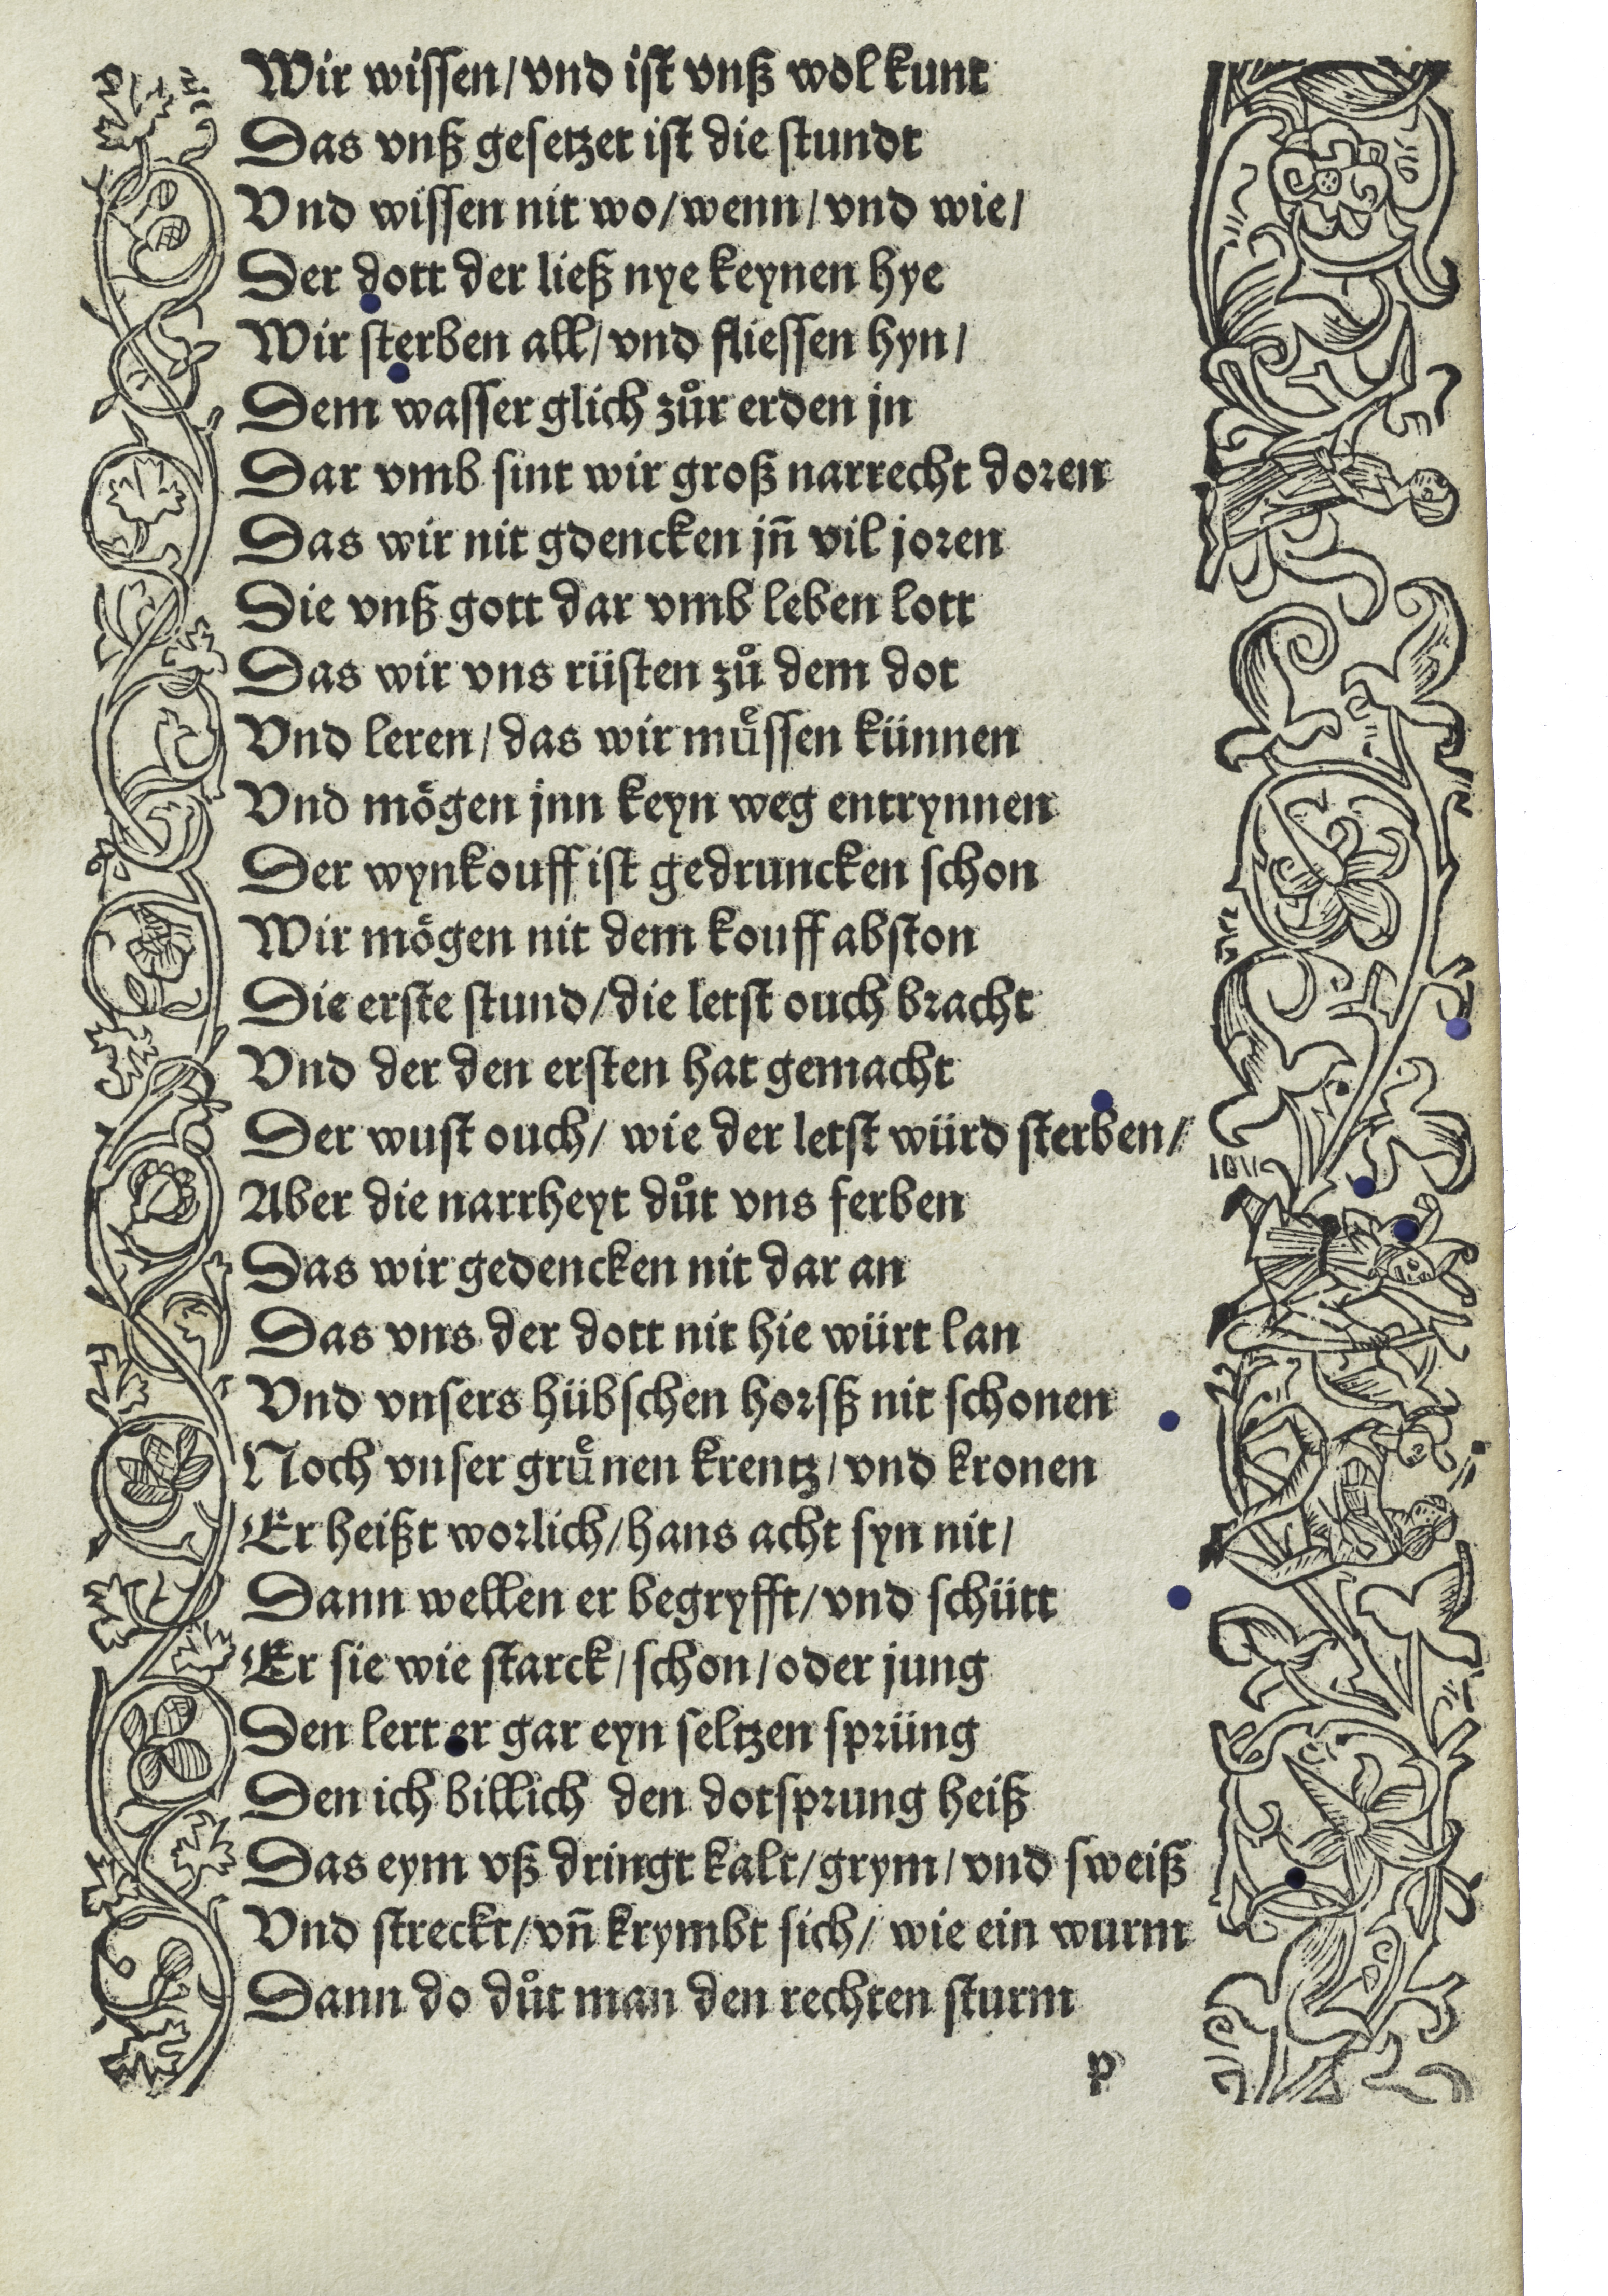 Wir wissen/vnd ist vnß wol kunt
Das vnß gesetzet ist die stundt
Vnd wissen nit wo/wenn/vnd wie/
Der dott der ließ nye keynen hye
Wir sterben all/vnd fliessen hyn/
Dem wasser glich zůr erden jn
Dar vmb sint wir groß narrecht doren
Das wir nit gdencken jn̄ vil joren
Die vnß gott dar vmb leben lott
Das wir vns rüsten zů dem dot
Vnd leren/das wir muͤssen künnen
Vnd mögen jnn keyn weg entrynnen
Der wynkouff ist gedruncken schon
Wir mögen nit dem kouff abston
Die erste stund/die letst ouch bracht
Vnd der den ersten hat gemacht
Der wust ouch/wie der letst würd sterben/
Aber die narrheyt důt vns ferben
Das wir gedencken nit dar an
Das vns der dott nit hie würt lan
Vnd vnsers hübschen horsß nit schonen
Noch vnser gruͤnen krentz/vnd kronen
Er heißt worlich/hans acht syn nit/
Dann wellen er begryfft/vnd schütt
Er sie wie starck/schon/oder jung
Den lert er gar eyn seltzen sprüng
Den ich billich den dotsprung heiß
Das eym vß dringt kalt/grym/vnd sweiß
Vnd streckt/vn̄ krymbt sich/wie ein wurm
Dann do důt man den rechten sturm
p